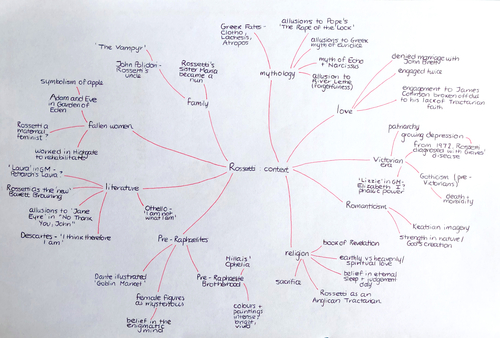 Greek Fates -
Clotho,
Lachesis,
Atropos
allusions to Pope's
'The Rape of the Lock'
allusions to Greek
myth of Euridice
myth of Echo
+ Narcisso
allusion to
River Lethe
(forgetfulness)
mythology
'The Vampyr'
John Polidori -
Rossetti's
uncle
Rossetti's
sister Maria
became a
nun
Family
denied marriage with
John Brett
engaged twice
engagement to James
Collinson broken off due
to his lack of Tractarian
faith
love
symbolism of apple
Adam and Eve
in Garden of
Eden
Rossetti a
'maternal
feminist'
worked in Highgate
to rehabilitate
Fallen women
patriarchy
growing depression
from 1972, Rossetti
diagnosed with Graves'
disease
Victorian
era
'Lizzie' in GM -
Elizabeth I?
phallic power
Gothicism (pre-
Victorians)
death +
morbidity
Rossetti context
'Laura' in GM -
Petrarch's Laura
Rossetti as the 'new'
Barrett Browning
allusions to 'Jane
Eyre' in "No Thank
You, John"
Descartes - 'I think therefore
I am'
literature
Othello -
'I am not
what I am'
Romanticism
Keatsian imagery
strength in nature/
God's creation
Pre-Raphaelites
Dante illustrated
'Goblin Market'
female figures
as mysterious
belief in the
enigmatic
mind
Pre-Raphaelite
Brotherhood
Millais'
Ophelia
colours +
paintings
intense/
bright,
vivid
religion
book of Revelation
earthly vs heavenly/
spiritual love
belief in eternal
sleep + judgement
day
Rossetti as an
Anglican Tractarian
sacrifice